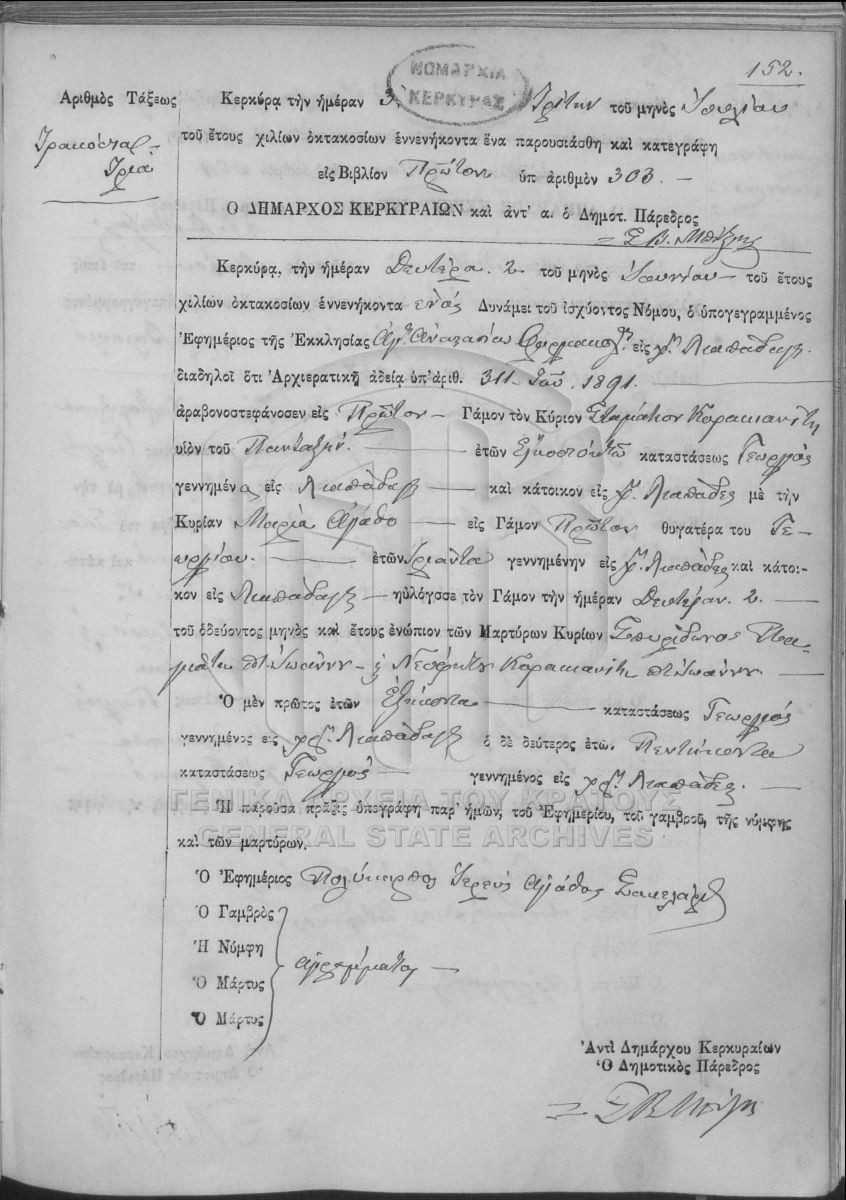 152.
ΝΟΜΑΡΧΙΑ
ΚΕΡΚΥΡΑΣ
Ἀριθμὸς Τάξεως
Τριακόσια
Τρία
Κερκύρᾳ τὴν ἡμέραν 3 Τρίτην τοῦ μηνὸς Ἰουλίου
τοῦ ἔτους χιλίων ὀκτακοσίων ἐννενήκοντα ἕνα παρουσιάσθη καὶ κατεγράφη
εἰς Βιβλίον Πρῶτον ὑπ ἀριθμὸν 303. —
Ο ΔΗΜΑΡΧΟΣ ΚΕΡΚΥΡΑΙΩΝ καὶ ἀντ' α. ὁ Δημοτ. Πάρεδρος
Σ. Β.
Κερκύρᾳ, τὴν ἡμέραν Δευτέρα. 2. τοῦ μηνὸς Ἰουνίου — τοῦ ἔτους
χιλίων ὀκτακοσίων ἐννενήκοντα ενός Δυνάμει τοῦ ἰσχύοντος Νόμου, ὁ ὑπογεγραμμένος
Ἐφημέριος τῆς Ἐκκλησίας Αγ. Αναστασίας εἰς χ. Λιαπάδαις.
διαδηλοῖ ὅτι Ἀρχιερατικῇ ἀδείᾳ ὑπ'ἀριθ. 311. 1891. —
ἀραβονοστεφάνοσεν εἰς Πρῶτον — Γάμον τὸν Κύριον Σταμάτιον Καρακιανίτη
υἱὸν τοῦ Πανταζῆ. — ἐτῶν Εἰκοσιοκτώ καταστάσεως Γεωργός
γεννημένο εἰς Λιαπάδαις — καὶ κάτοικον εἰς χ. Λιαπάδες μὲ τὴν
Κυρίαν Μαρία Αγάθο — εἰς Γάμον Πρῶτον θυγατέρα του Γε-
ωργίου. — ἐτῶν Τριάντα γεννημένην εἰς χ. Λιαπάδες καὶ κάτοι-
κον εἰς Λιαπάδαις — ηὐλόγσσε τὸν Γάμον τὴν ἡμέραν Δευτέραν. 2. —
τοῦ ὁδεύοντος μηνὸς καὶ ἔτους ἐνώπιον τῶν Μαρτύρων Κυρίων Σπυρίδωνος
Ἰωάννη — Καρακιανίτη Ἰωάννη. —
Ὁ μὲν πρῶτος ἐτῶν Ἑξήκοντα — καταστάσεως Γεωργός
γεννημένος εἰς χ. Λιαπάδαις ὁ δὲ δεύτερος ἐτῶν Πεντήκοντα
καταστάσεως Γεωργός — γεννημένος εἰς χ. Λιαπάδες. —
Ἡ παροῦσα πρᾶξις ὑπεγράφη παρ' ἡμῶν, τοῦ Ἐφημερίου, τοῦ γαμβροῦ, τῆς νύμφης
καὶ τῶν μαρτύρων.
ΓΕΝΙΚΑ ΑΡΧΕΙΑ ΤΟΥ ΚΡΑΤΟΥΣ
GENERAL STATE ARCHIVES
Ὁ Ἐφημέριος Πολύκαρπος Ἱερεύς Αγάθος
Ὁ Γαμβρὸς
Ἡ Νύμφη
αγράμματοι —
Ὁ Μάρτυς
Ὁ Μάρτυς
Ἀντὶ Δημάρχου Κερκυραίων
Ὁ Δημοτικὸς Πάρεδρος
Σ Β